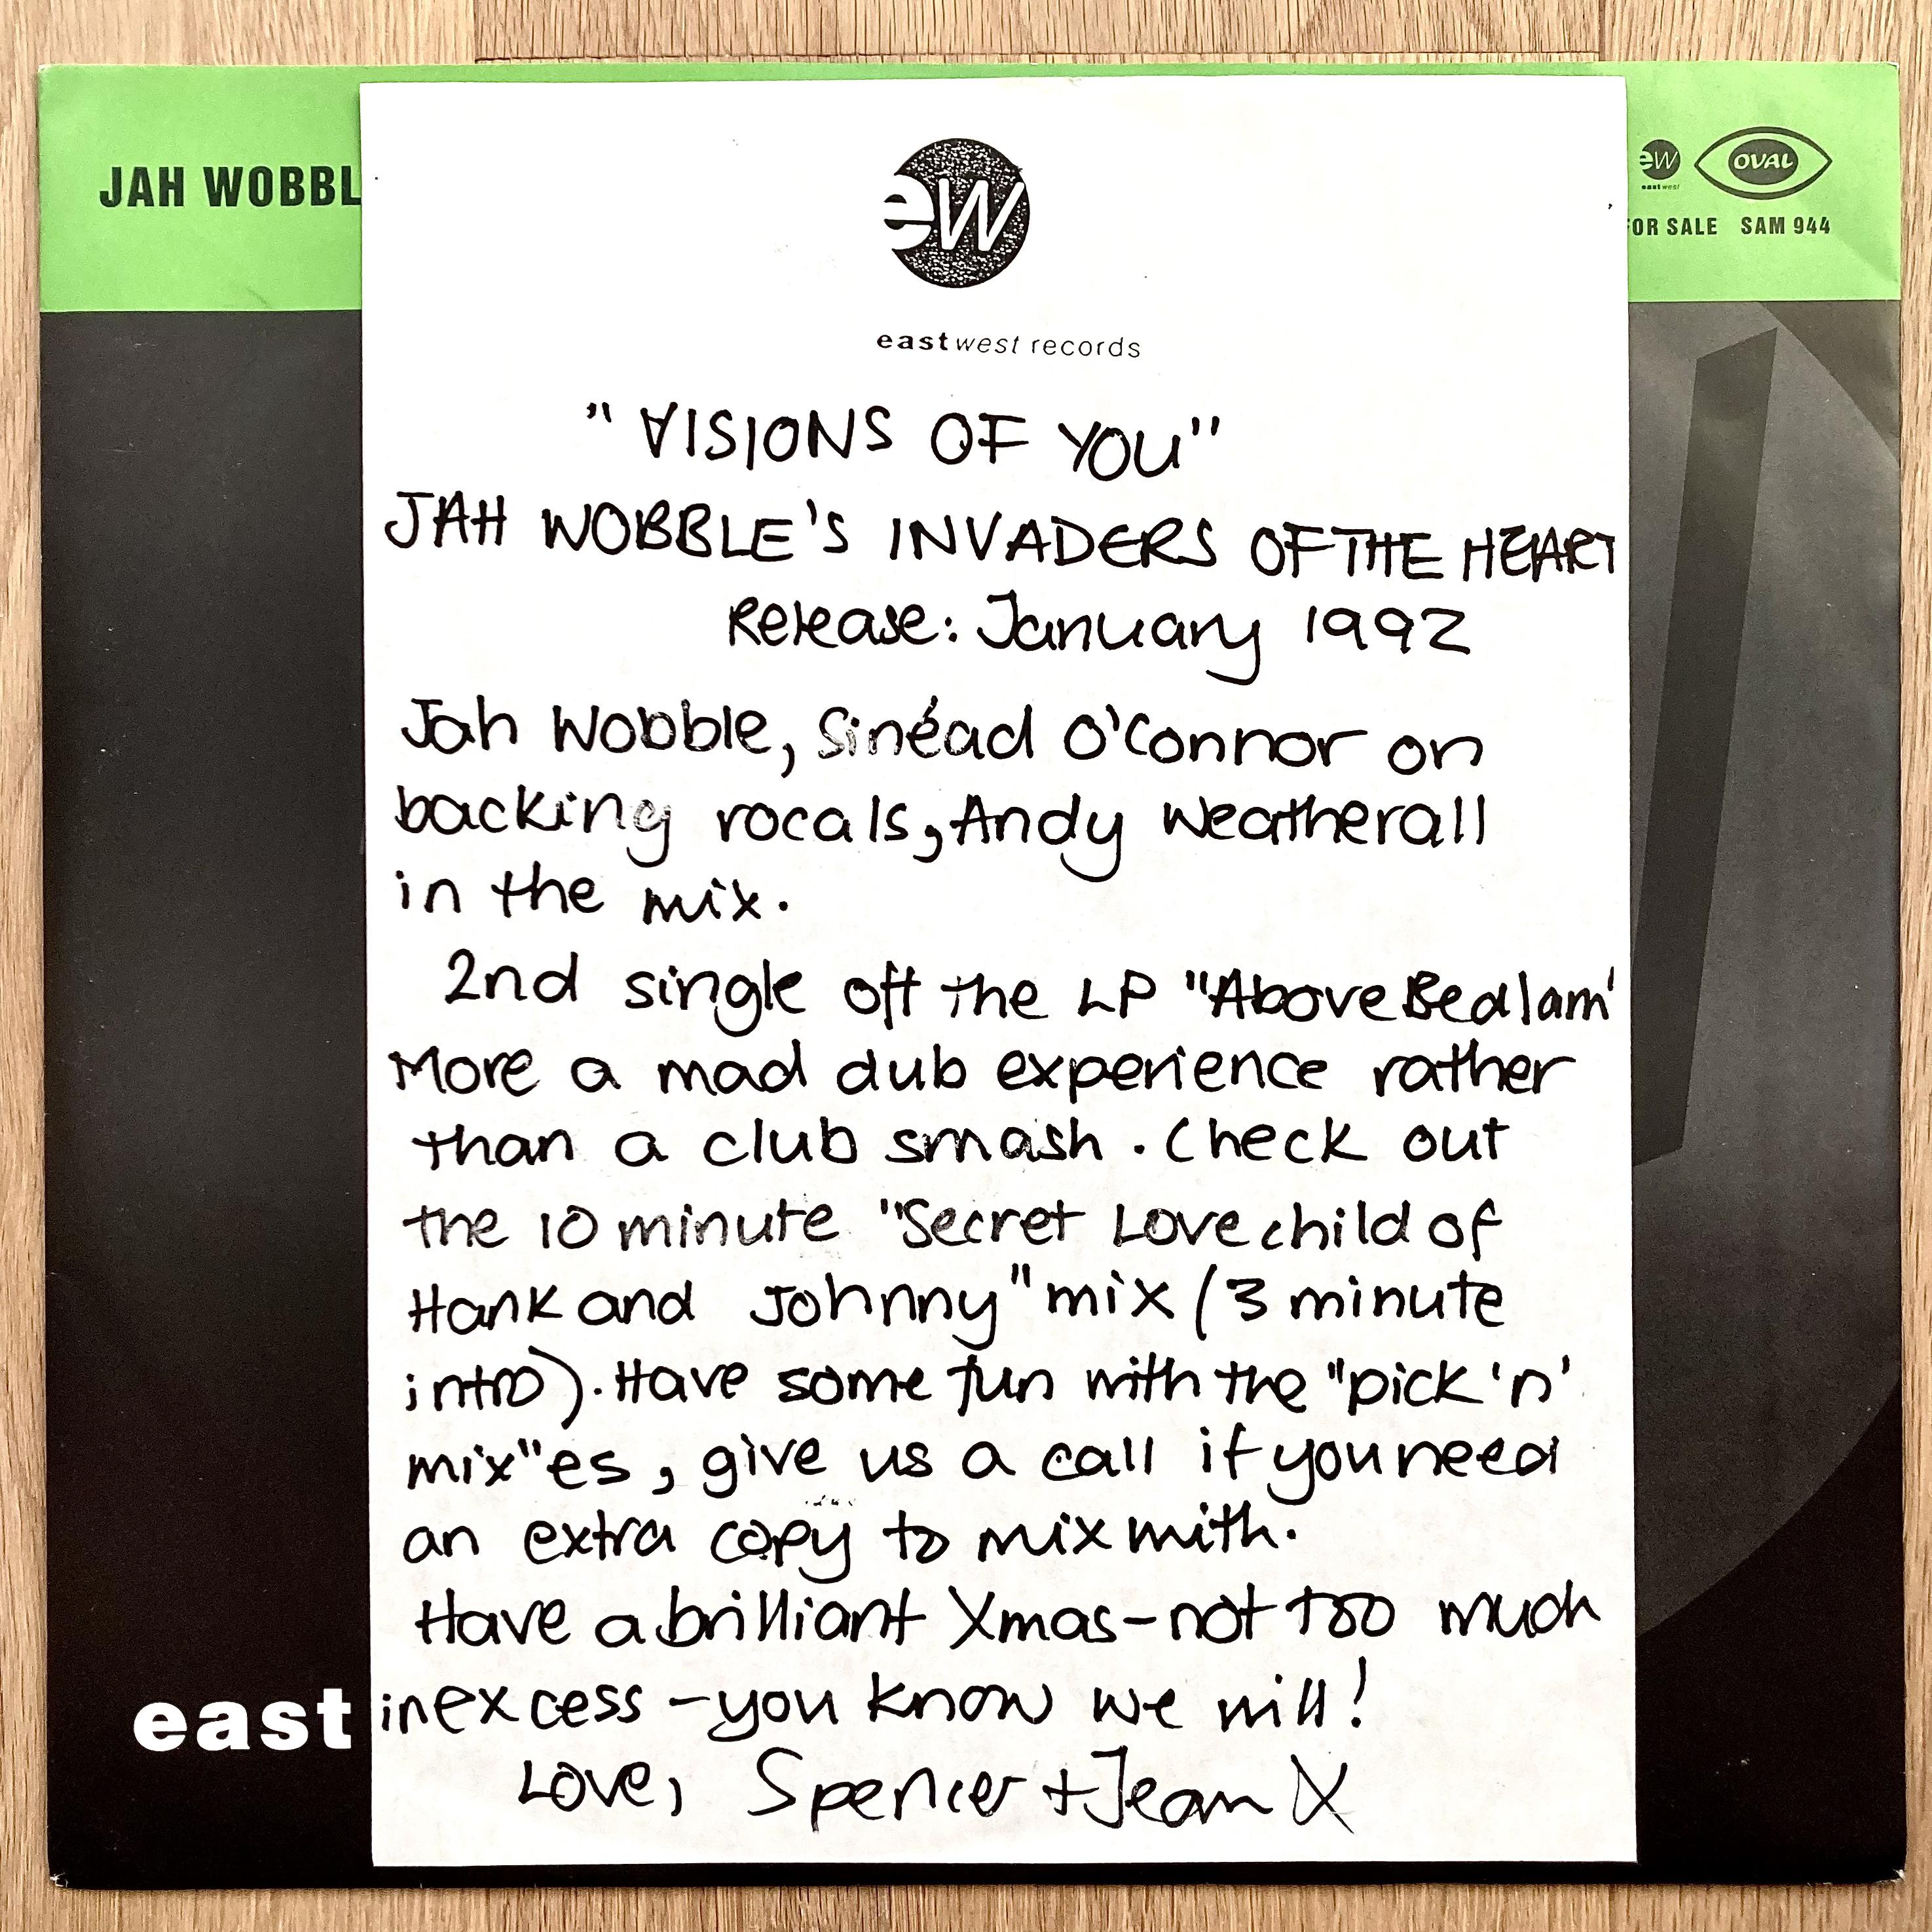 JAH WOBBL
ew
eastwest
OVAL
FOR SALE SAM 944
ew
eastwest records
"VISIONS OF YOU"
JAH WOBBLE'S INVADERS OF THE HEART
Release: January 1992
Jah Wobble, Sinéad O'Connor on
backing vocals, Andy Weatherall
in the mix.
2nd single off the LP "Above Bedlam'
More a mad dub experience rather
than a club smash. Check out
the 10 minute "Secret Love child of
Hank and Johnny" mix (3 minute
intro). Have some fun with the "pick 'n'
mix"es, give us a call if you need
an extra copy to mix with.
Have a brilliant Xmas - not too much
in excess - you know we will!
Love, Spencer + Jean X
east